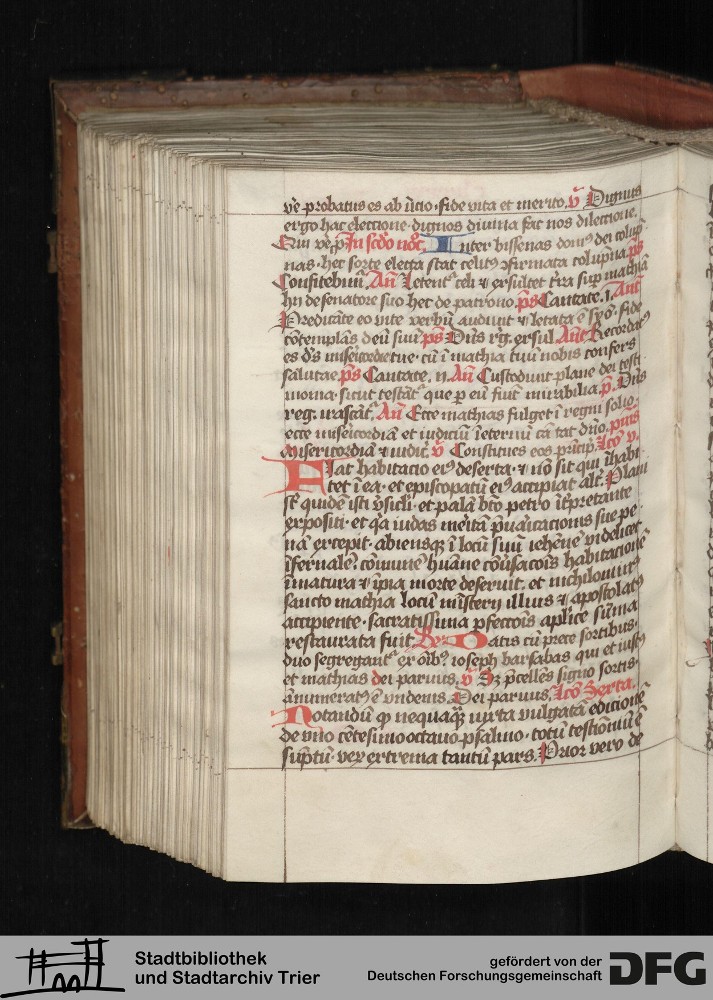 ṽe probatus es ab iĩcio · fide vita et merito. ꝟ Dignus
ergo hac eleccione · dignos divina fac nos dileccione.
Qui ve̾. p̃ In scd̃o noc̃. Inter bissenas domꝰ dei colup̃
nas · hec sorte electa stat celitꝰ ɔfirmata colupna. p̃s
Confitebim̃. Añ Letentᷣ celi ⁊ exsultet tr̃a sup̱ mathia
hij de senatore suo hec de patrono. p̃s Cantate. j. Añ
Predicãte eo vite verbũ audiuit ⁊ letata ẽ syõ · fide
cõtemplãs deũ suũ p̃s Dñs rg̃. exsul. Añ Recordatꝰ
es dẽs misericordie tue · cũ ĩ mathia tuũ nobis confers
salutare p̃s Cantate. ij. Añ Custodiunt plane dei testi
monia · sicut testãtᷣ que p̱ eũ fiũt mirabilia. p̃. Dñs
reg. irascãtᷣ. Añ Ecce mathias fulget ĩ regni solio ·
ecce misericordiã et iudiciũ ĩ eternũ cãtat dño. p̃ms
Misericordiã ⁊ iudic̃. ꝟ Constitues eos prĩcip̃. Lc̃o v.
Fiat habitacio eiꝰ deserta · ⁊ nõ sit qui ĩhabi
tet ĩ ea · et episcopatũ eiꝰ accipiat alt̾. Plani
sũt quidẽ isti v̾siculi · et palã bt̃o petro ĩt̾pretante
expositi · et qa iudas meritã p̃uaricacionis sue pe
nã excepit · abiensqꝫ ĩ locũ suũ iehẽne videlicet
ĩfernale · cõmunẽ humane cõuersacõis habitacionẽ
ĩmatura ⁊ ĩpia morte deseruit. et nichilominꝰ
sancto mathia locũ mĩsterij illius ⁊ apostolatꝰ
accipiente · sacratissima p̱feccõis aplice sũma
restaurata fuit. Re. Datis cũ prece sortibus ·
duo segregantᷣ ex oĩbꝰ · ioseph barsabas qui et iustꝰ
et mathias dei paruus. ꝟ Sꝫ p̃cellẽs signo sortis ·
ãnumeratꝰ ẽ vndenis. Dei paruus. Lc̃o Sexta.
Notandũ ꝙ nequaqꝫ iuxta vulgatã edicionẽ
de vno cẽtesimo octauo psalmo · totũ testĩoniũ ẽ
sup̃tũ · veꝝ extrema tantũ pars. Prior vero de
Stadtbibliothek
und Stadtarchiv Trier
gefördert von der
Deutschen Forschungsgemeinschaft
DFG